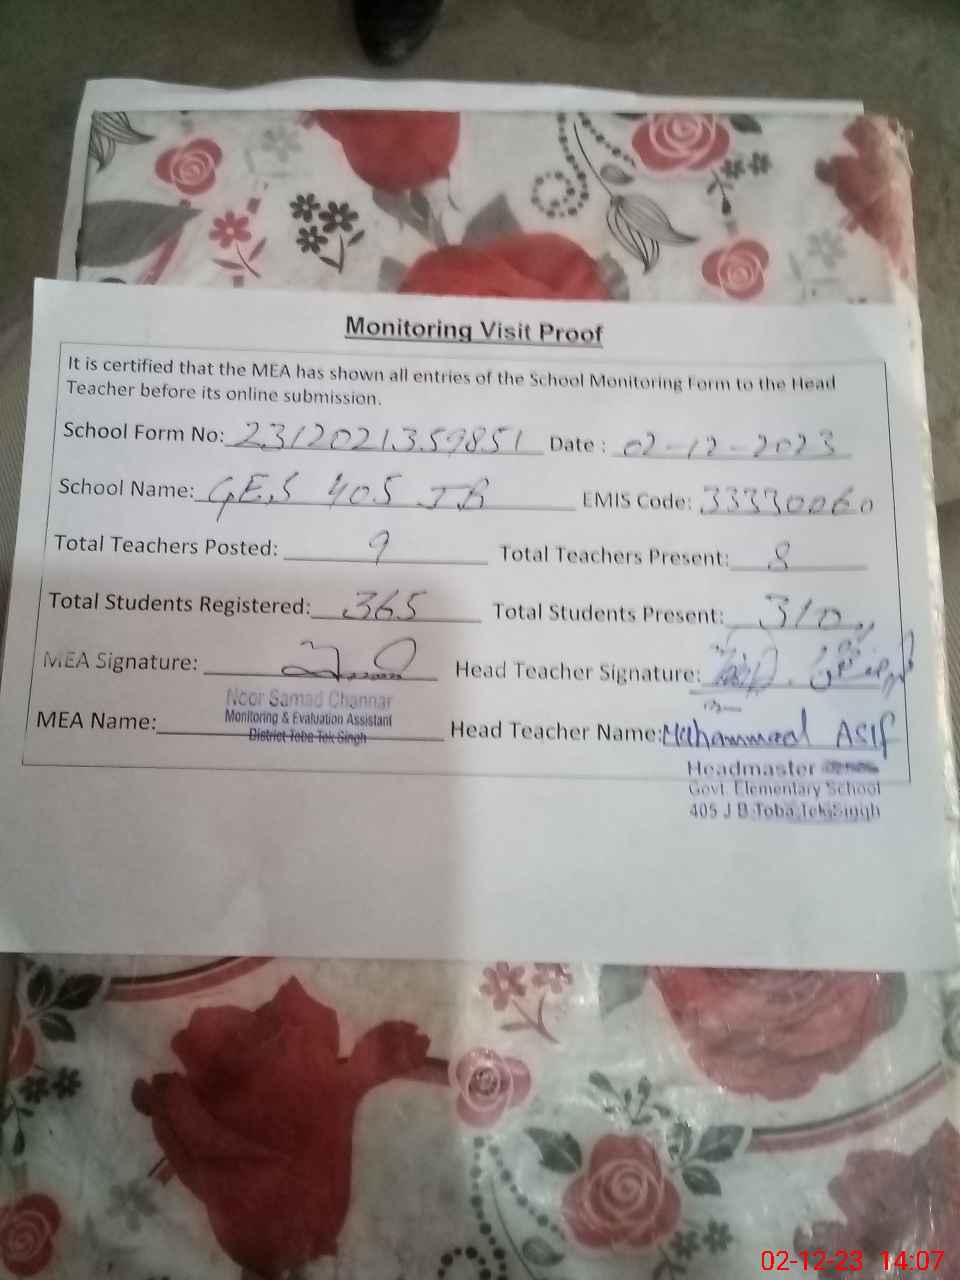 Monitoring Visit Proof
It is certified that the MEA has shown all entries of the School Monitoring Form to the Head
Teacher before its online submission.
School Form No: 2312021359851 Date : 02-12-2023
School Name: G.E.S 405 JB EMIS Code: 33330060
Total Teachers Posted: 9 Total Teachers Present: 8
Total Students Registered: 365 Total Students Present: 310
MEA Signature: Head Teacher Signature:
Noor Samad Channar
Monitoring & Evaluation Assistant
District Toba Tek Singh
MEA Name: Head Teacher Name: Muhammad Asif
Headmaster
Govt. Elementary School
405 J B Toba Tek Singh
02-12-23 14:07